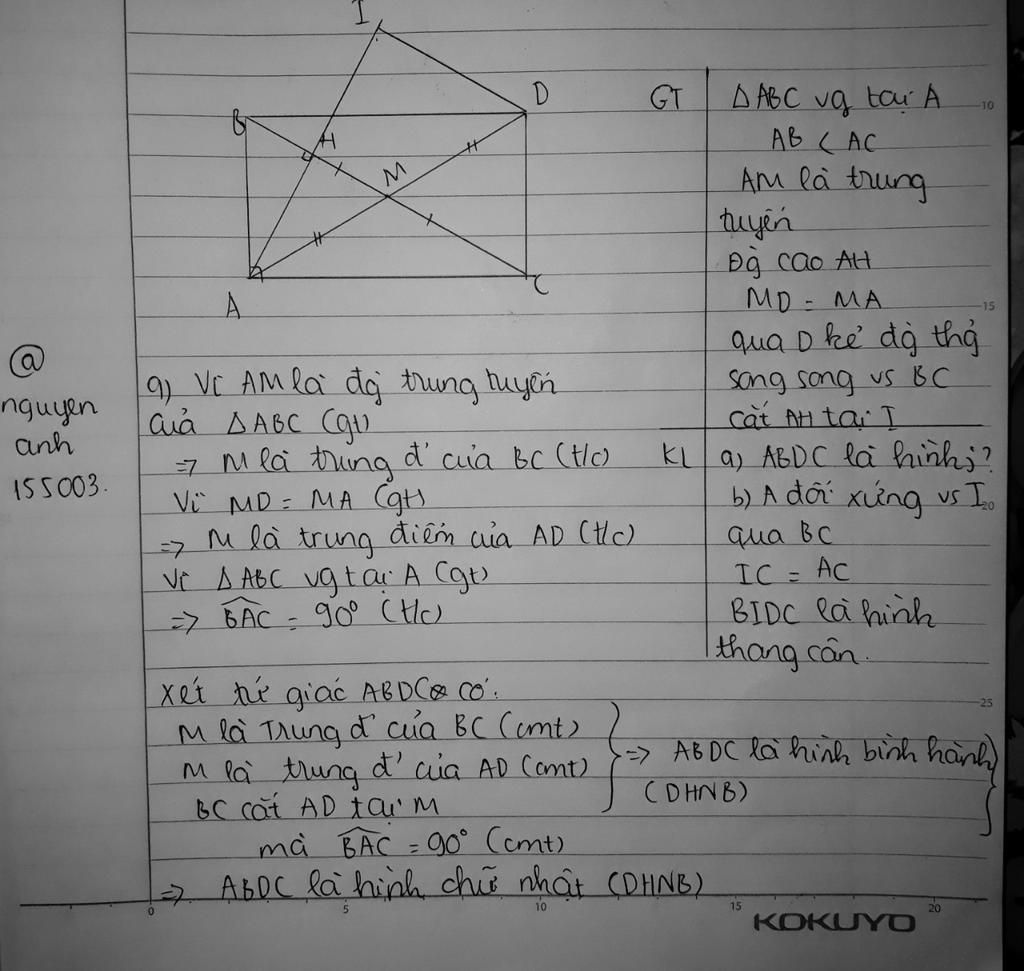 I
D
B
H
M
A
C
GT
ΔABC vg tại A
AB < AC
AM là trung
tuyến
Đg cao AH
MD = MA
qua D kẻ đg thg
song song vs BC
cắt AH tại I
KL
a) ABDC là hình j?
b) A đối xứng vs I
qua BC
IC = AC
BIDC là hình
thang cân.
@
nguyen
anh
155003.
a) Vì AM là đg trung tuyến
của ΔABC (gt)
=> M là trung đ' của BC (t/c)
Vì MD = MA (gt)
=> M là trung điểm của AD (t/c)
Vì ΔABC vg tại A (gt)
=> BAC = 90° (t/c)
Xét tứ giác ABDC có:
M là Trung đ' của BC (cmt)
M là trung đ' của AD (cmt)
BC cắt AD tại M
=> ABDC là hình bình hành
(DHNB)
mà BAC = 90° (cmt)
=> ABDC là hình chữ nhật (DHNB)
10
15
20
25
0 5 10 15 20
KOKUYO